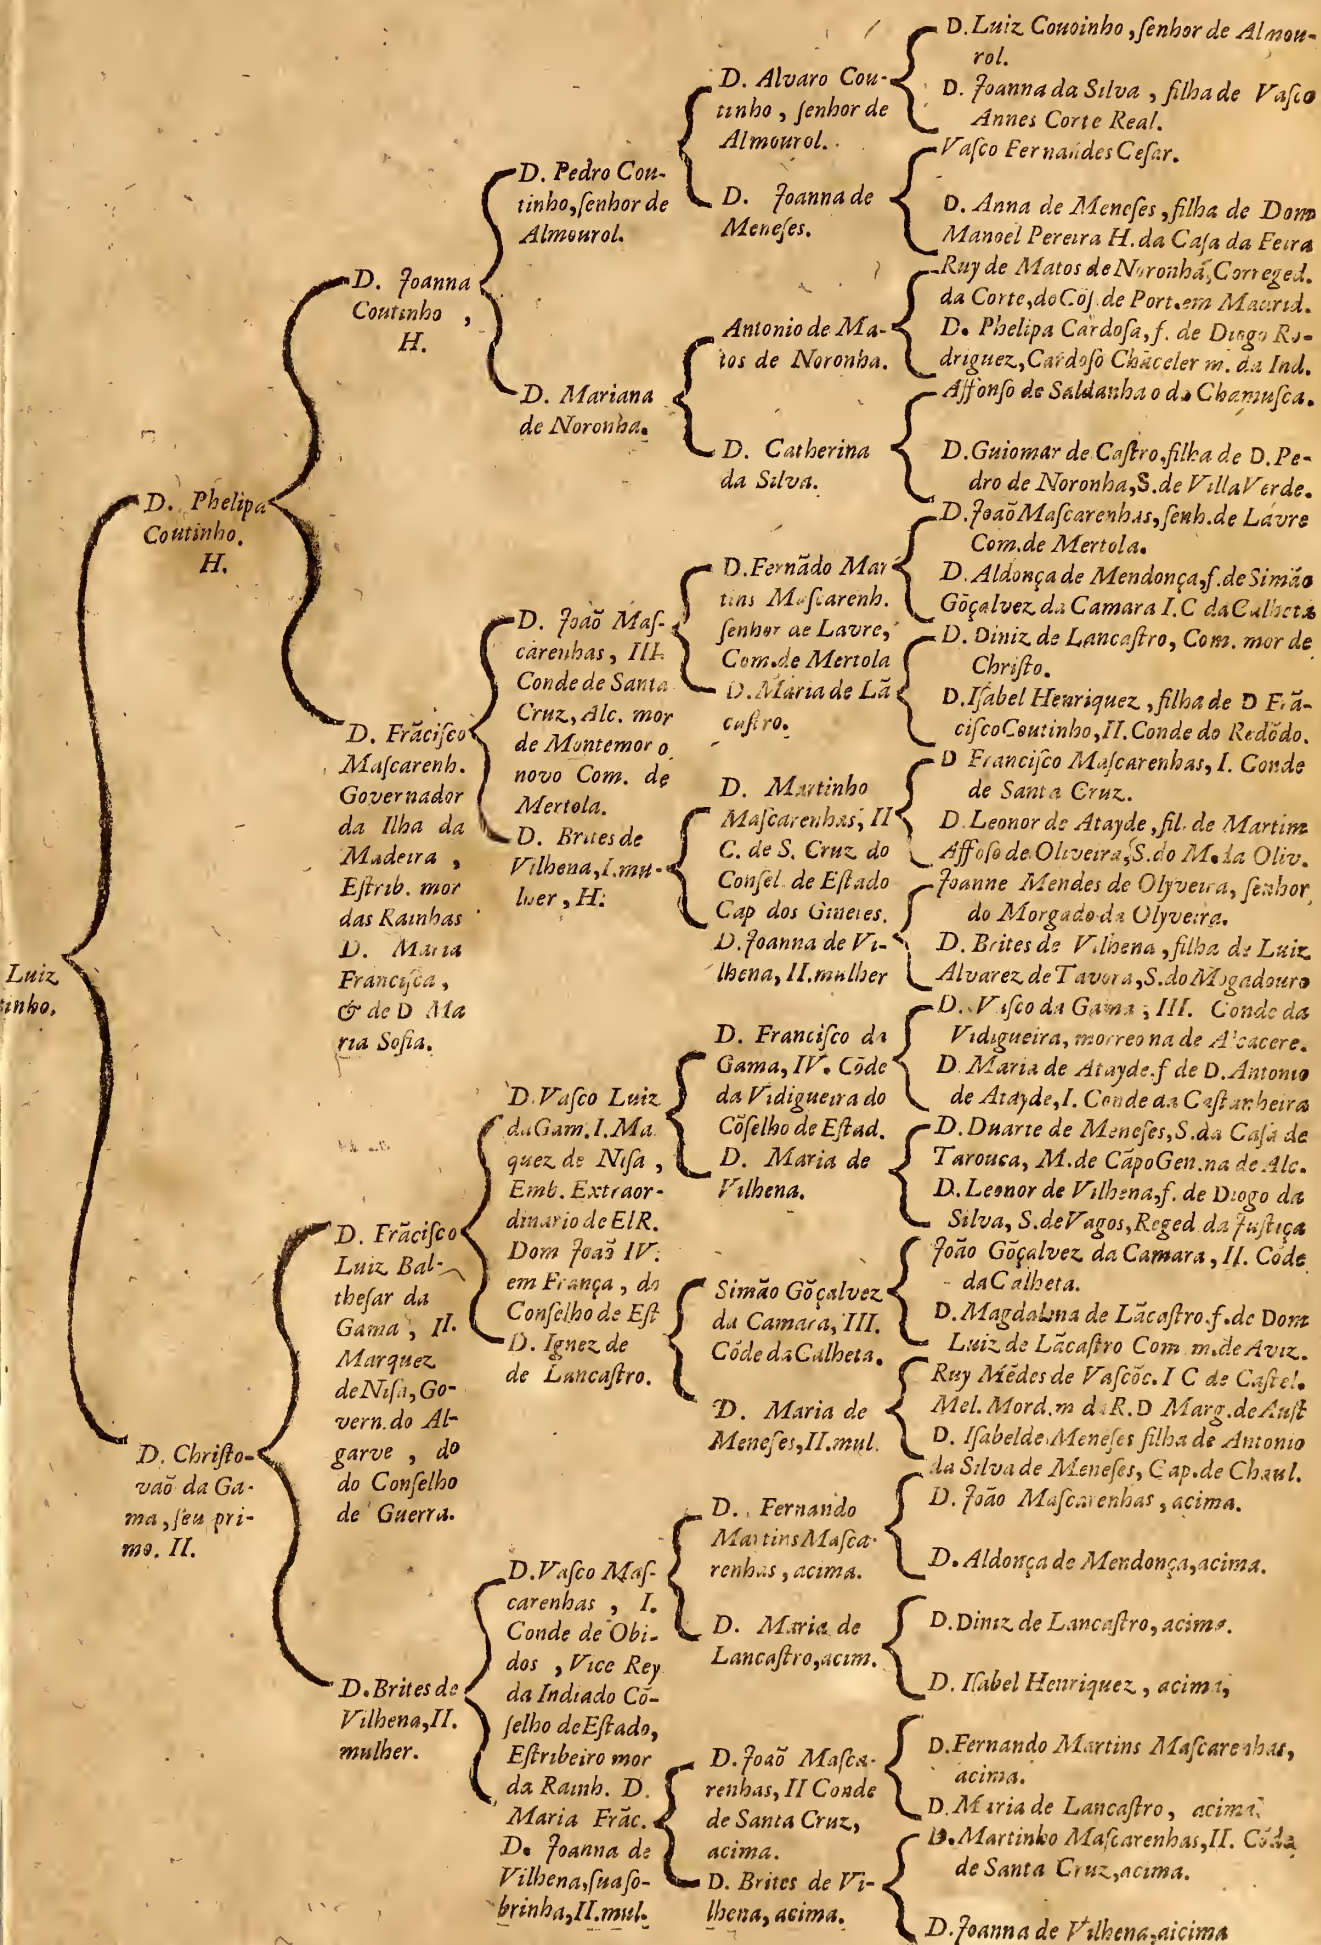 Luiz
tinho.
D. Phelipa
Coutinho.
H.
D. Chriſto-
vaõ da Ga-
ma, ſeu pri-
mo. II.
D. Joanna
Coutinho ,
H.
D. Frãciſco
Maſcarenh.
Governador
da Ilha da
Madeira ,
Eſtrib. mor
das Rainhas
D. Maria
Franciſca ,
& de D Ma
ria Sofia.
D. Frãciſco
Luiz Bal-
theſar da
Gama , II.
Marquez
de Niſa, Go-
vern. do Al-
garve , do
do Conſelho
de Guerra.
D. Brites de
Vilhena, II.
mulher.
D. Pedro Cou-
tinho, ſenhor de
Almourol.
D. Mariana
de Noronha.
D. Joaõ Maſ-
carenhas , III.
Conde de Santa
Cruz, Alc. mor
de Montemor o
novo Com. de
Mertola.
D. Brites de
Vilhena, I. mu-
lher , H.
D. Vaſco Luiz
da Gam. I. Ma
quez de Niſa ,
Emb. Extraor-
dinario de ElR.
Dom Joaõ IV.
em França , do
Conſelho de Eſt
D. Ignez de
de Lancaſtro.
D. Vaſco Maſ-
carenhas , I.
Conde de Obi-
dos , Vice Rey
da India do Cõ-
ſelho de Eſtado,
Eſtribeiro mor
da Rainh. D.
Maria Frãc.
D. Joanna de
Vilhena, ſua ſo-
brinha, II. mul.
D. Alvaro Cou-
tinho , ſenhor de
Almourol.
D. Joanna de
Meneſes.
Antonio de Ma-
tos de Noronha.
D. Catherina
da Silva.
D. Fernãdo Mar
tins Maſcarenh.
ſenhor de Lavre,
Com. de Mertola
D. Maria de Lã
caſtro.
D. Martinho
Maſcarenhas, II
C. de S. Cruz do
Conſel. de Eſtado
Cap dos Ginetes.
D. Joanna de Vi-
lhena, II. mulher
D. Franciſco da
Gama, IV. Cõde
da Vidigueira do
Cõſelho de Eſtad.
D. Maria de
Vilhena.
Simão Gõçalvez
da Camara, III.
Cõde da Calheta.
D. Maria de
Meneſes, II. mul.
D. Fernando
Martins Maſca-
renhas , acima.
D. Maria de
Lancaſtro, acim.
D. Joaõ Maſca-
renhas, II Conde
de Santa Cruz,
acima.
D. Brites de Vi-
lhena, acima.
D. Luiz Couoinho , ſenhor de Almou-
rol.
D. Joanna da Silva , filha de Vaſco
Annes Corte Real.
Vaſco Fernandes Ceſar.
D. Anna de Meneſes , filha de Dom
Manoel Pereira H. da Caſa da Feira
Ruy de Matos de Noronha, Correged.
da Corte, do Cõſ. de Port. em Madrid.
D. Phelipa Cardoſa, f. de Diogo Ro-
driguez, Cardoſo Chãceler m. da Ind.
Affonſo de Saldanha o da Chamuſca.
D. Guiomar de Caſtro, filha de D. Pe-
dro de Noronha, S. de Villa Verde.
D. Joaõ Maſcarenhas, ſenh. de Lavre
Com. de Mertola.
D. Aldonça de Mendonça, f. de Simão
Gõçalvez da Camara I. C da Calheta
D. Diniz de Lancaſtro, Com. mor de
Chriſto.
D. Iſabel Henriquez , filha de D Frã-
ciſco Coutinho, II. Conde do Redõdo.
D Franciſco Maſcarenhas, I. Conde
de Santa Cruz.
D. Leonor de Atayde , fil. de Martim
Affoſo de Oliveira, S. do M. da Oliv.
Joanne Mendes de Olyveira, ſenhor
do Morgado da Olyveira.
D. Brites de Vilhena , filha de Luiz
Alvarez de Tavora, S. do Mogadouro
D. Vaſco da Gama , III. Conde da
Vidigueira, morreo na de Alcacere.
D. Maria de Atayde. f de D. Antonio
de Atayde, I. Conde da Caſtanheira
D. Duarte de Meneſes, S. da Caſa de
Tarouca, M. de Cãpo Gen. na de Alc.
D. Leonor de Vilhena, f. de Diogo da
Silva, S. de Vagos, Reged. da Juſtiça
João Gõçalvez da Camara , II. Cõde
da Calheta.
D. Magdalena de Lãcaſtro. f. de Dom
Luiz de Lãcaſtro Com m. de Aviz.
Ruy Mẽdes de Vaſcõc. I C de Caſtel.
Mel. Mord. m da R. D Marg. de Auſt
D. Iſabel de Meneſes filha de Antonio
da Silva de Meneſes, Cap. de Chaul.
D. João Maſcarenhas , acima.
D. Aldonça de Mendonça, acima.
D. Diniz de Lancaſtro, acima.
D. Iſabel Henriquez , acima,
D. Fernando Martins Maſcarenhas,
acima.
D. Maria de Lancaſtro, acima.
D. Martinho Maſcarenhas, II. Cõde
de Santa Cruz, acima.
D. Joanna de Vilhena, aicima